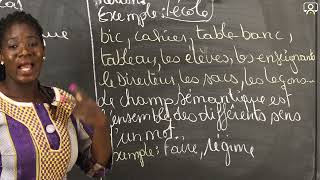 Exemple : l'école
bic, cahier, table-banc,
tableau, les élèves, les enseignants
le Directeur, les sacs, les leçons...
de champ sémantique est
l'ensemble des différents sens
d'un mot.
Exemple : Faire, régime